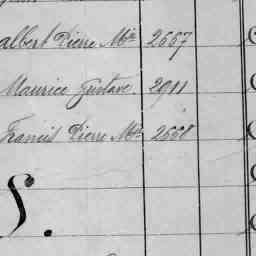 albert Pierre Mie 2667
Maurice Gustave. 2911
Francis Pierre Mie 2668
S.